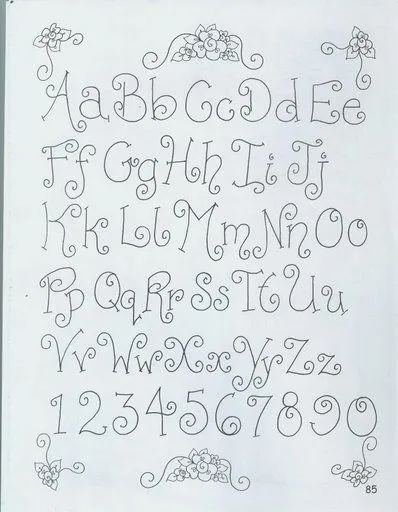 Aa Bb Cc Dd Ee
Ff Gg Hh Ii Jj
Kk Ll Mm Nn Oo
Pp Qq Rr Ss Tt Uu
Vv Ww Xx Yy Zz
1234567890
85